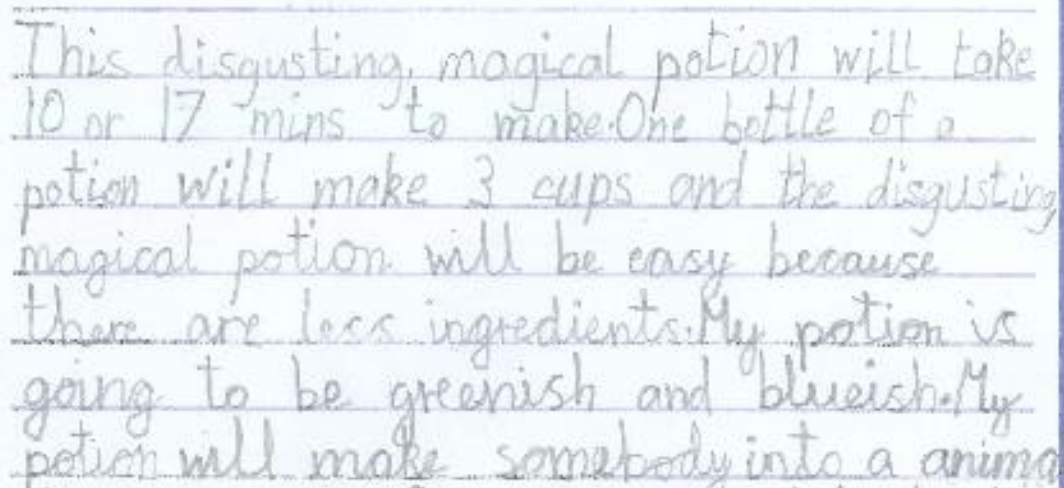 This disgusting, magical potion will take
10 or 17 mins to make.One bottle of a
potion will make 3 cups and the disgusting
magical potion will be easy because
there are less ingredients.My potion is
going to be greenish and blueish.My
potion will make somebody into a anima